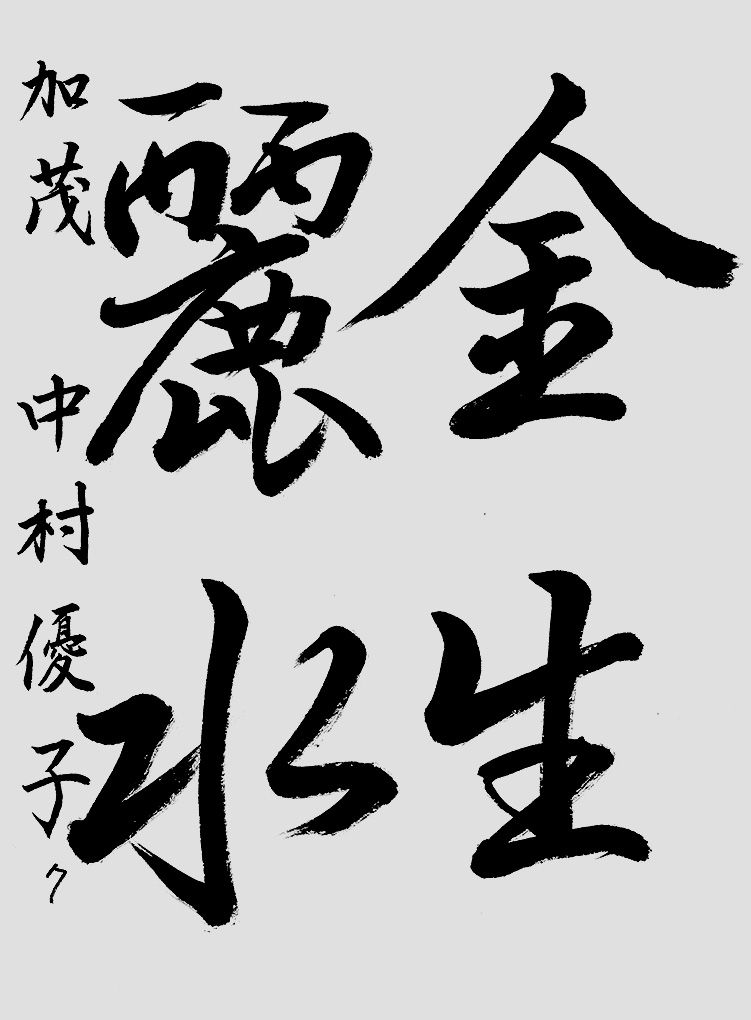 金生
麗水
加茂 中村優子ク